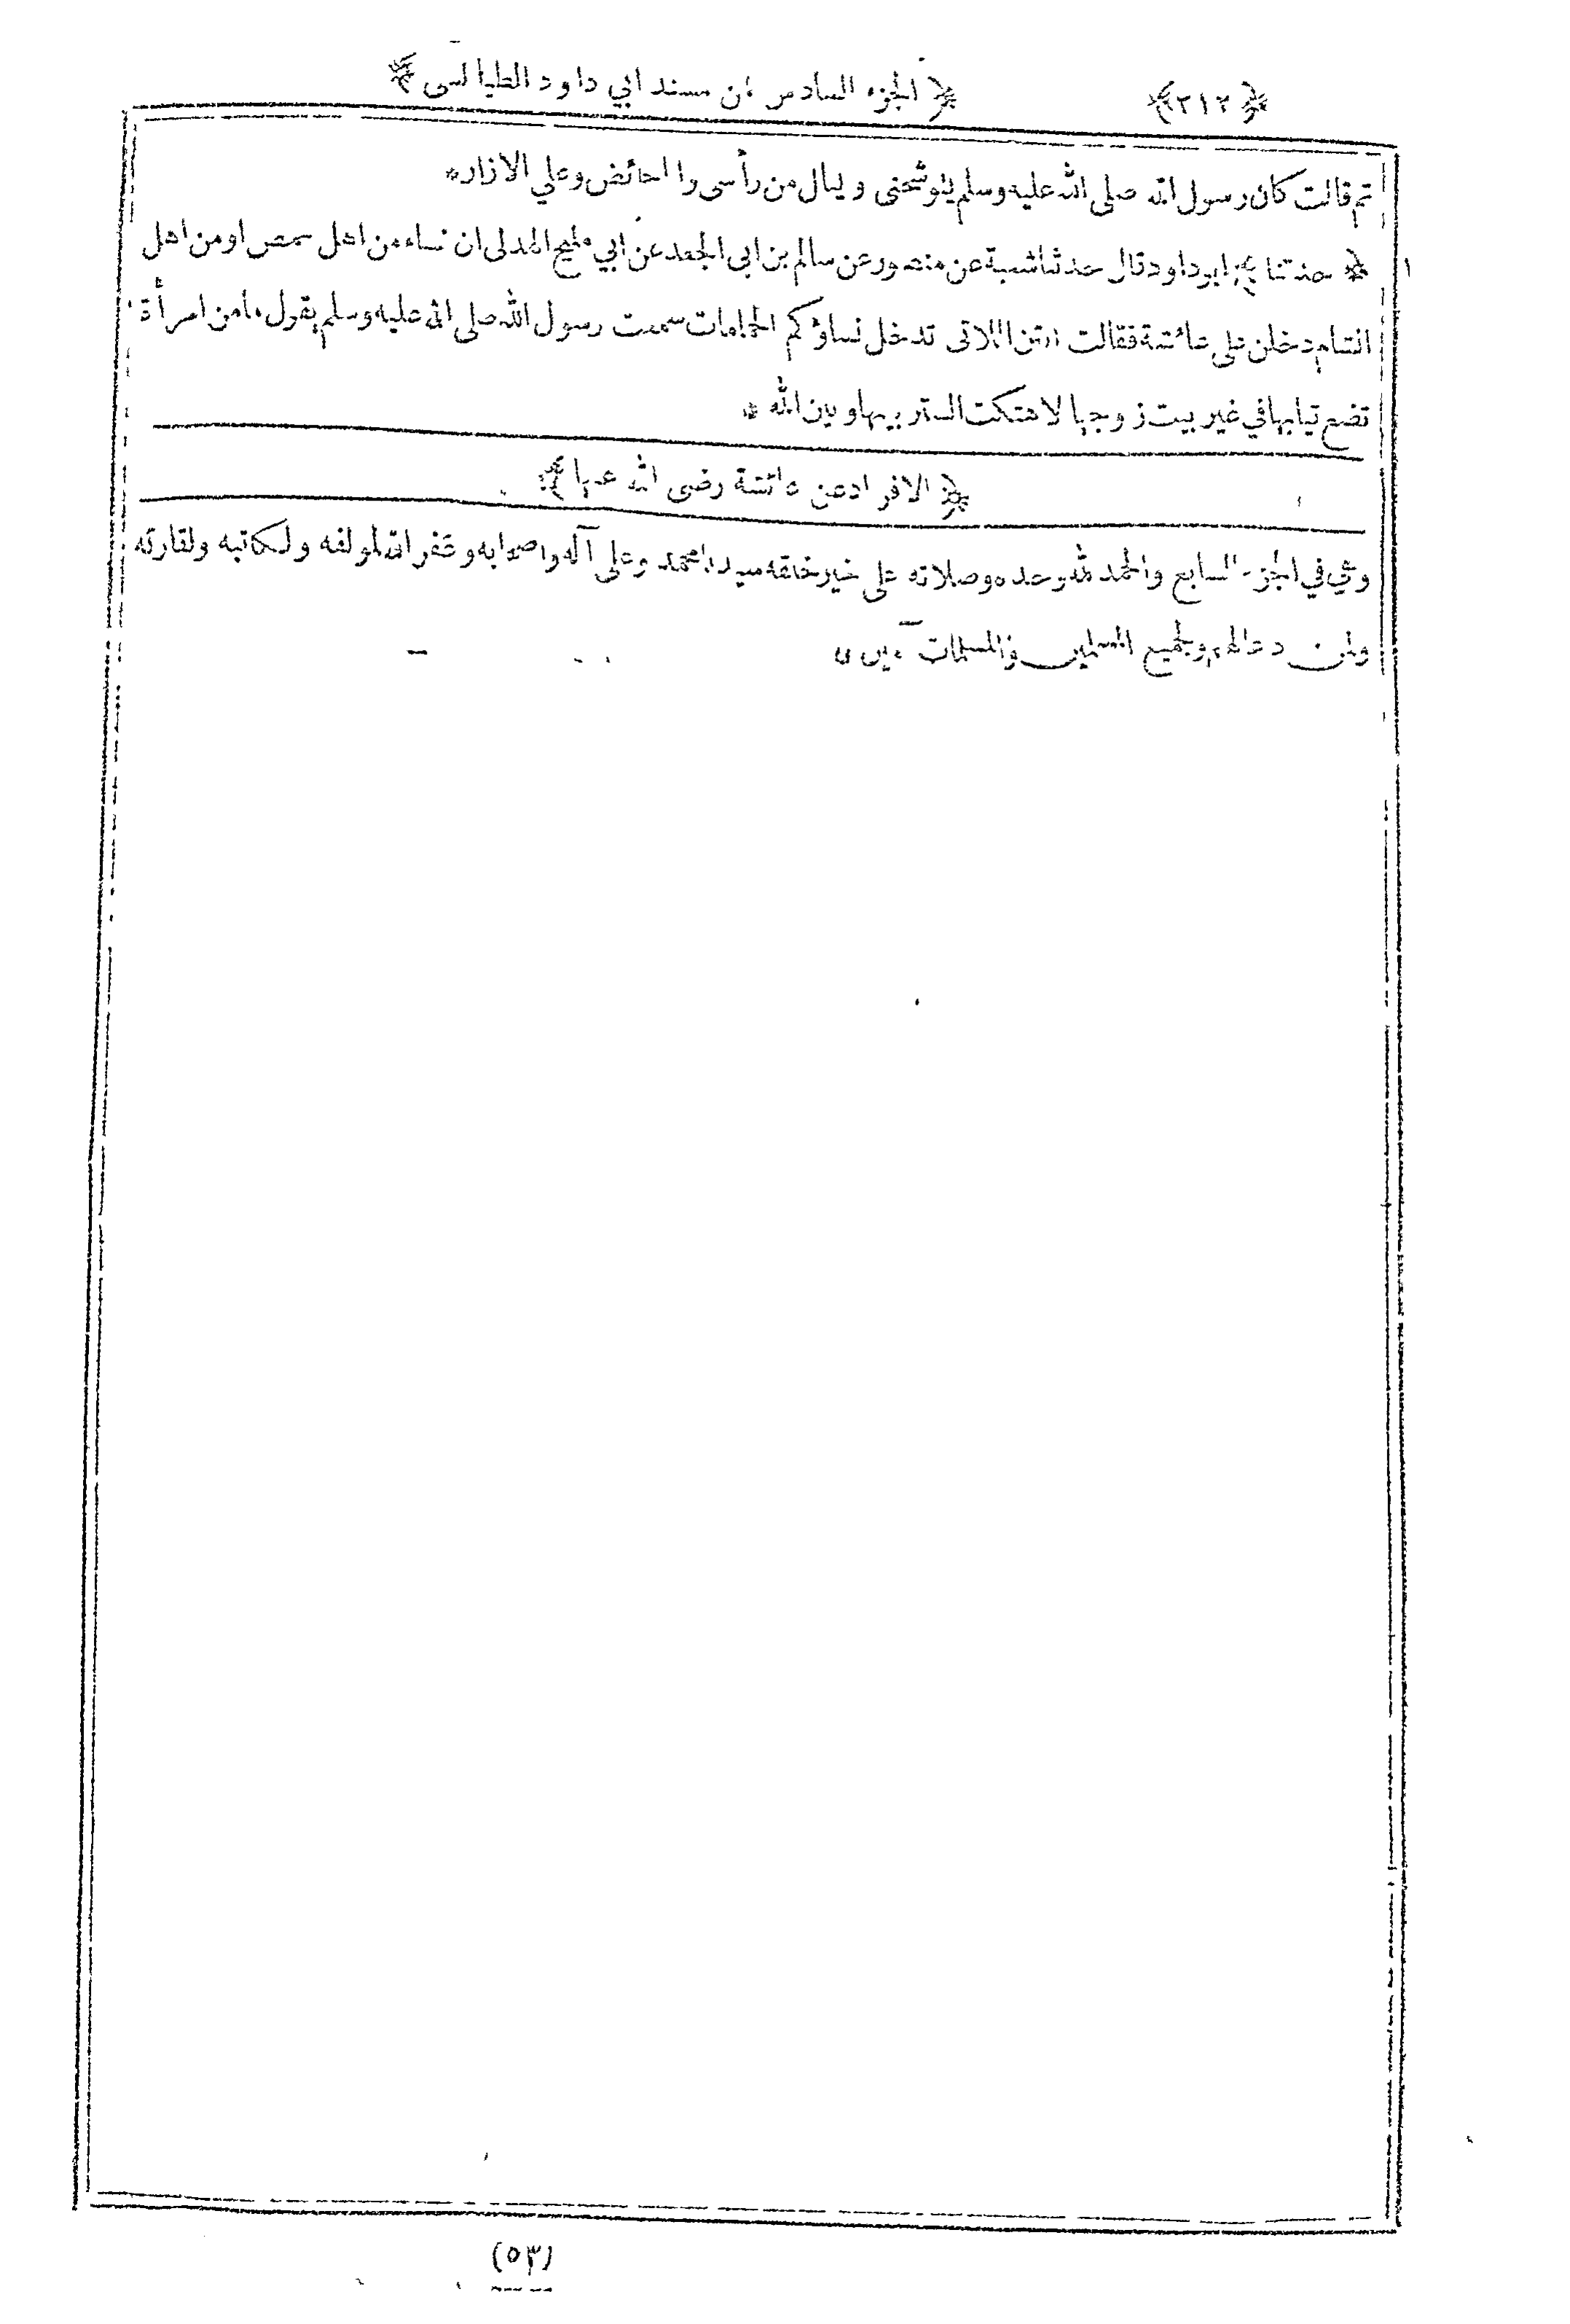 ﴿٢١٢﴾ ﴿الجزء السادس من مسند ابي داود الطيالسى﴾
ثم قالت كان رسول الله صلى الله عليه وسلم يتوشحنى وينال من رأسى وانا حائض وعلي الازار*
﴿حدثنا﴾ ابو داود قال حدثنا شعبة عن منصور عن سالم بن ابى الجعد عن ابي مليح الهذلى ان نساء من اهل حمص او من اهل
الشام دخلن على عائشة فقالت انتن اللاتى تدخل نساؤكم الحمامات سمعت رسول الله صلى الله عليه وسلم يقول ما من امرأة
تضع ثيابها في غير بيت زوجها الا هتكت الستر بينها وبين الله *
﴿الافراد عن عائشة رضى الله عنها﴾
وهي في الجزء السابع والحمد لله وحده وصلاته على خير خلقه سيدنا محمد وعلى آله واصحابه وغفر الله لمولفه ولكاتبه ولقارئه
ولمن دعا لهم ولجميع المسلمين والمسلمات آمين
(٥٣)